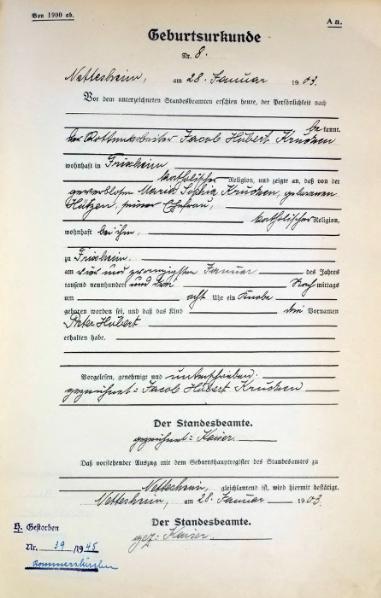 Von 1900 ab.
A n.
Geburtsurkunde
Nr. 8.
Nettersheim, am 28. Januar 1903.
Vor dem unterzeichneten Standesbeamten erschien heute, der Persönlichkeit nach
bekannt,
der Rottenarbeiter Jacob Hubert Krudwen
wohnhaft in
katholischer Religion, und zeigte an, daß von der
gewerblosen Maria Sophia Krudwen, geborenen
seiner Ehefrau,
katholischer Religion,
wohnhaft bei ihm,
zu
am vier und zwanzigsten Januar des Jahrs
tausend neunhundert und drei Nachmittags
um acht Uhr ein Knabe
geboren worden sei, und daß das Kind den Vornamen
Peter Hubert
erhalten habe.
Vorgelesen, genehmigt und unterschrieben.
gezeichnet: Jacob Hubert Krudwen
Der Standesbeamte.
gezeichnet: Kaiser.
Daß vorstehender Auszug mit dem Geburtshauptregister des Standesamts zu
Nettersheim, gleichlautend ist, wird hiermit bestätigt.
Nettersheim, am 28. Januar 1903.
Der Standesbeamte.
gez: Kaiser
H. Gestorben
Nr. 39 /1945